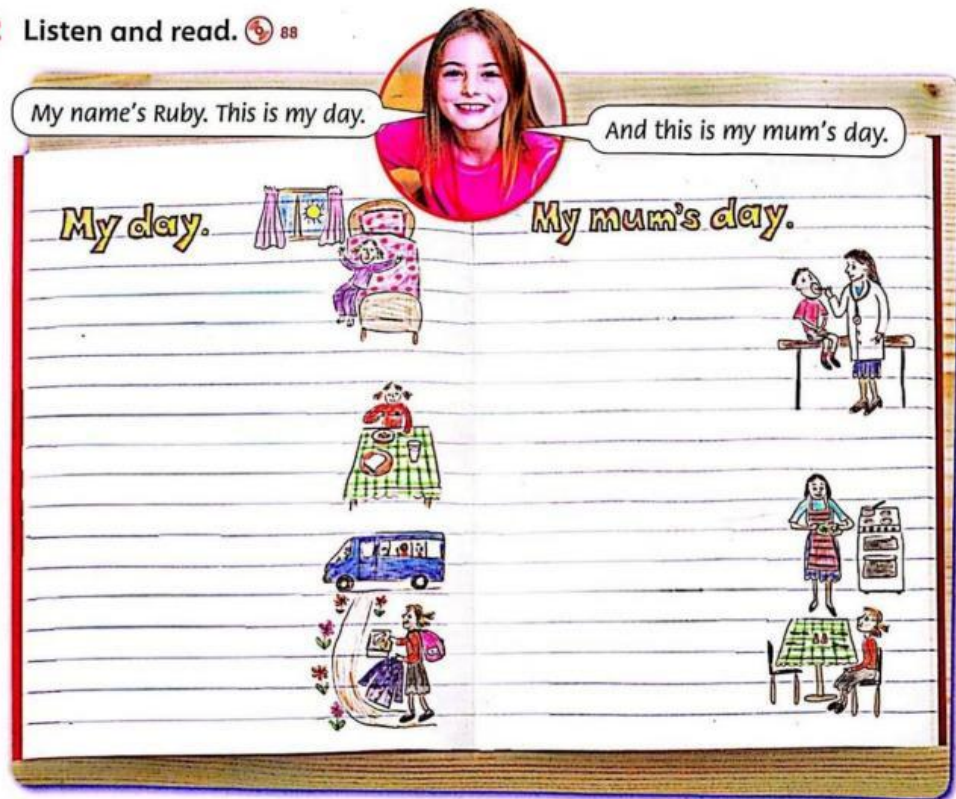 Listen and read. 88
My name's Ruby. This is my day.
And this is my mum's day.
My day.
My mum's day.